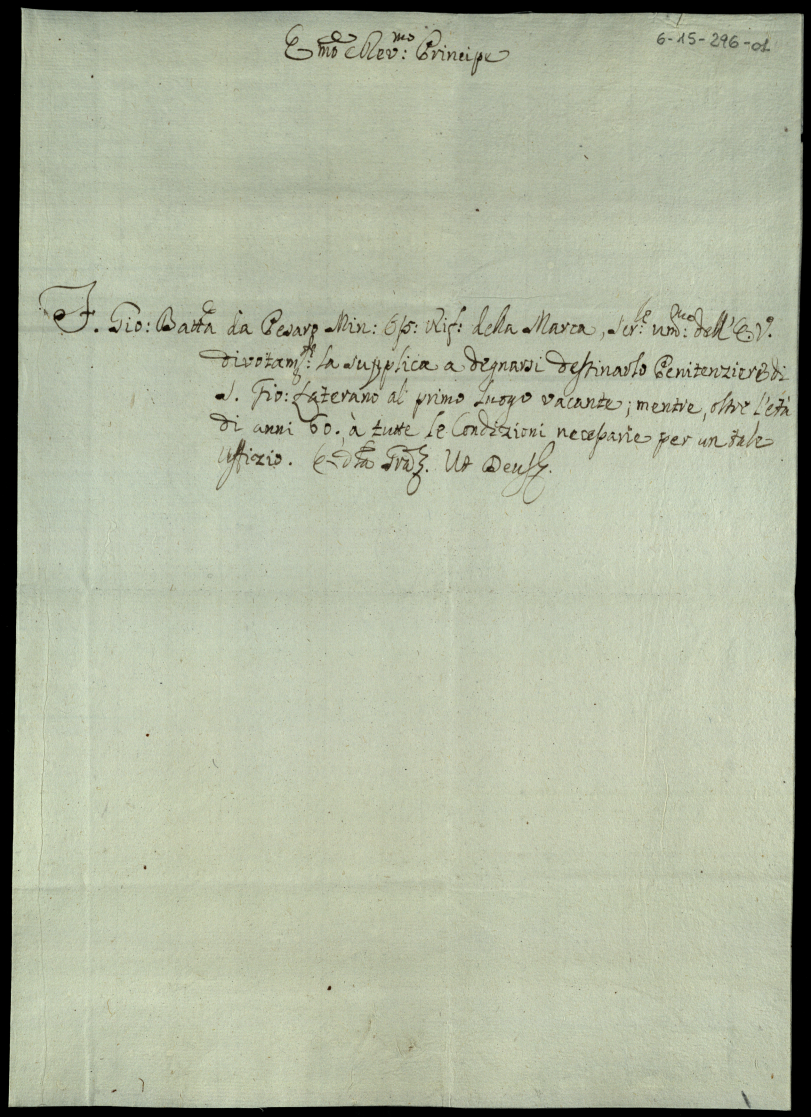 6-15-296-01
Emo e Rev:mo Principe
F. Gio: Batta da Pesaro Min: Oss: Rif: della Marca, Ser:e um:mo dell'E. V.
divotam:te la supplica a degnarsi destinarlo Penitenziere di
S. Gio: Laterano al primo luogo vacante; mentre, oltre l'età
di anni 60., à tutte le Condizioni necessarie per un tale
Uffizio. E dta Graz. Ut Deus